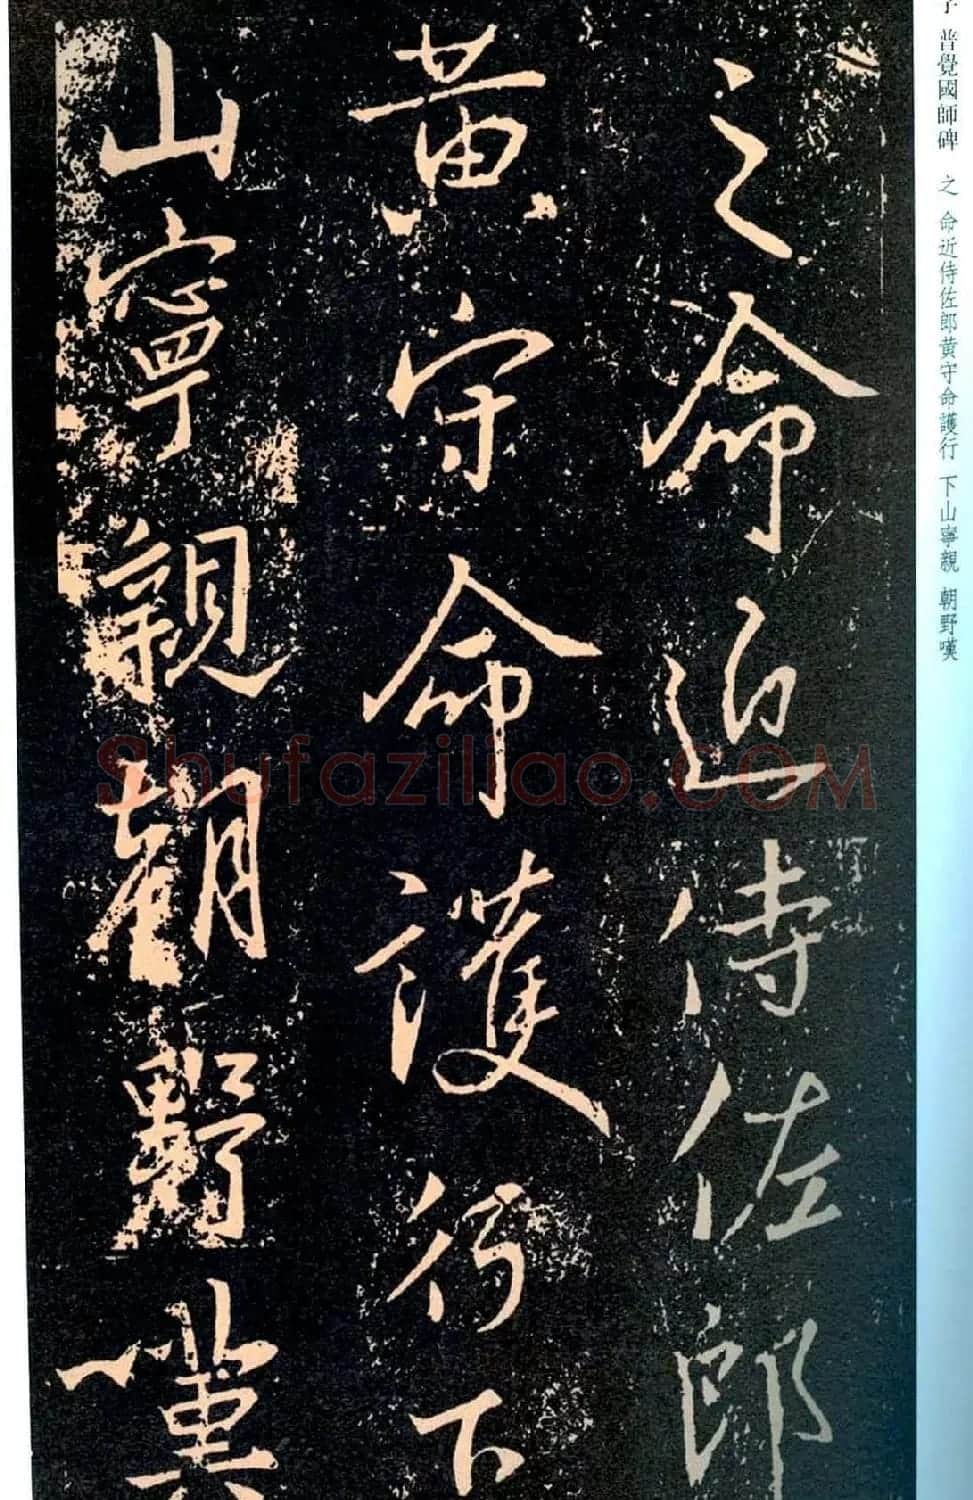 之命近侍佐郎
黄守命護行下
山寧親朝野
普覺國師碑 之 命近侍佐郎黄守命護行 下山寧親 朝野嘆
Shufaziliao.COM